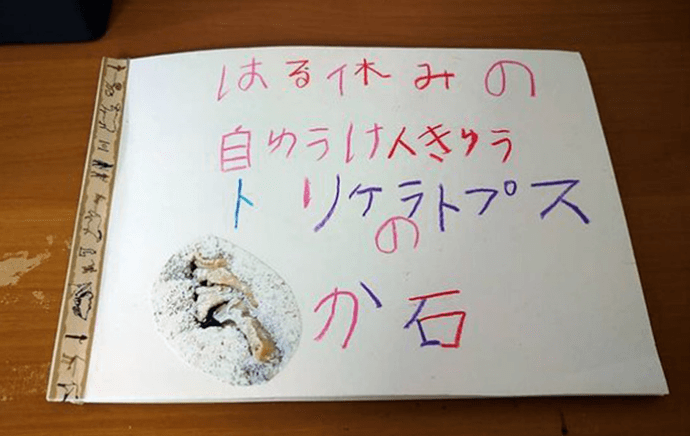 はる休みの
自ゆうけんきゅう
トリケラトプス
の
か石